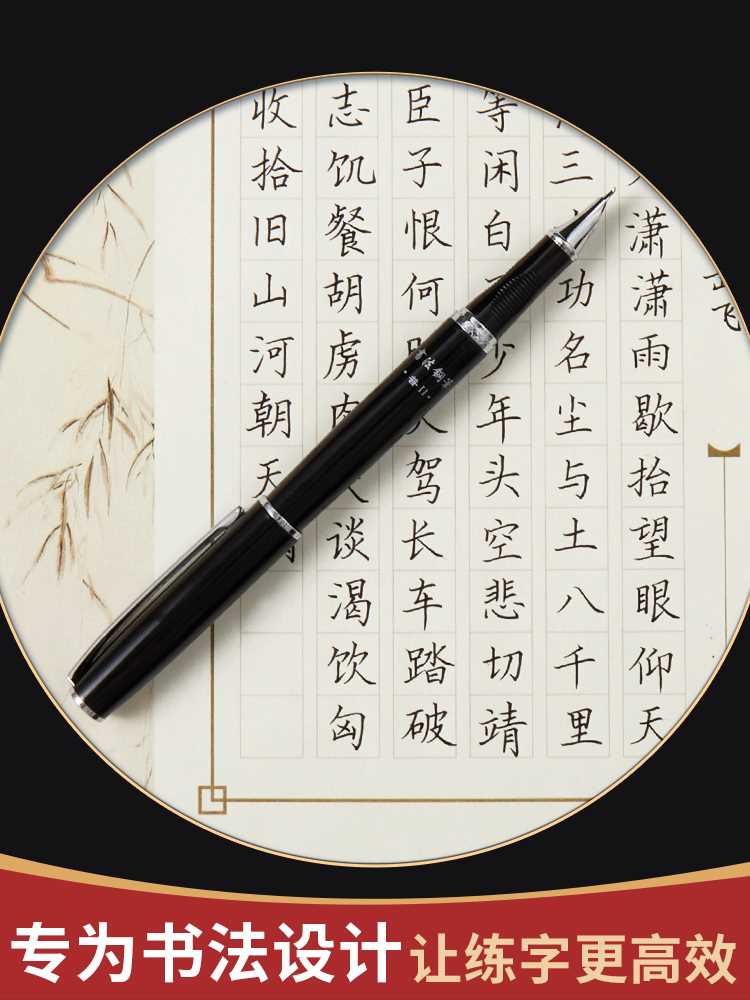 飞
潇潇雨歇抬望眼仰天
三功名尘与土八千里
等闲白少年头空悲切靖
臣子恨何驾长车踏破
志饥餐胡虏肉谈渴饮匈
收拾旧山河朝天
专为书法设计 让练字更高效